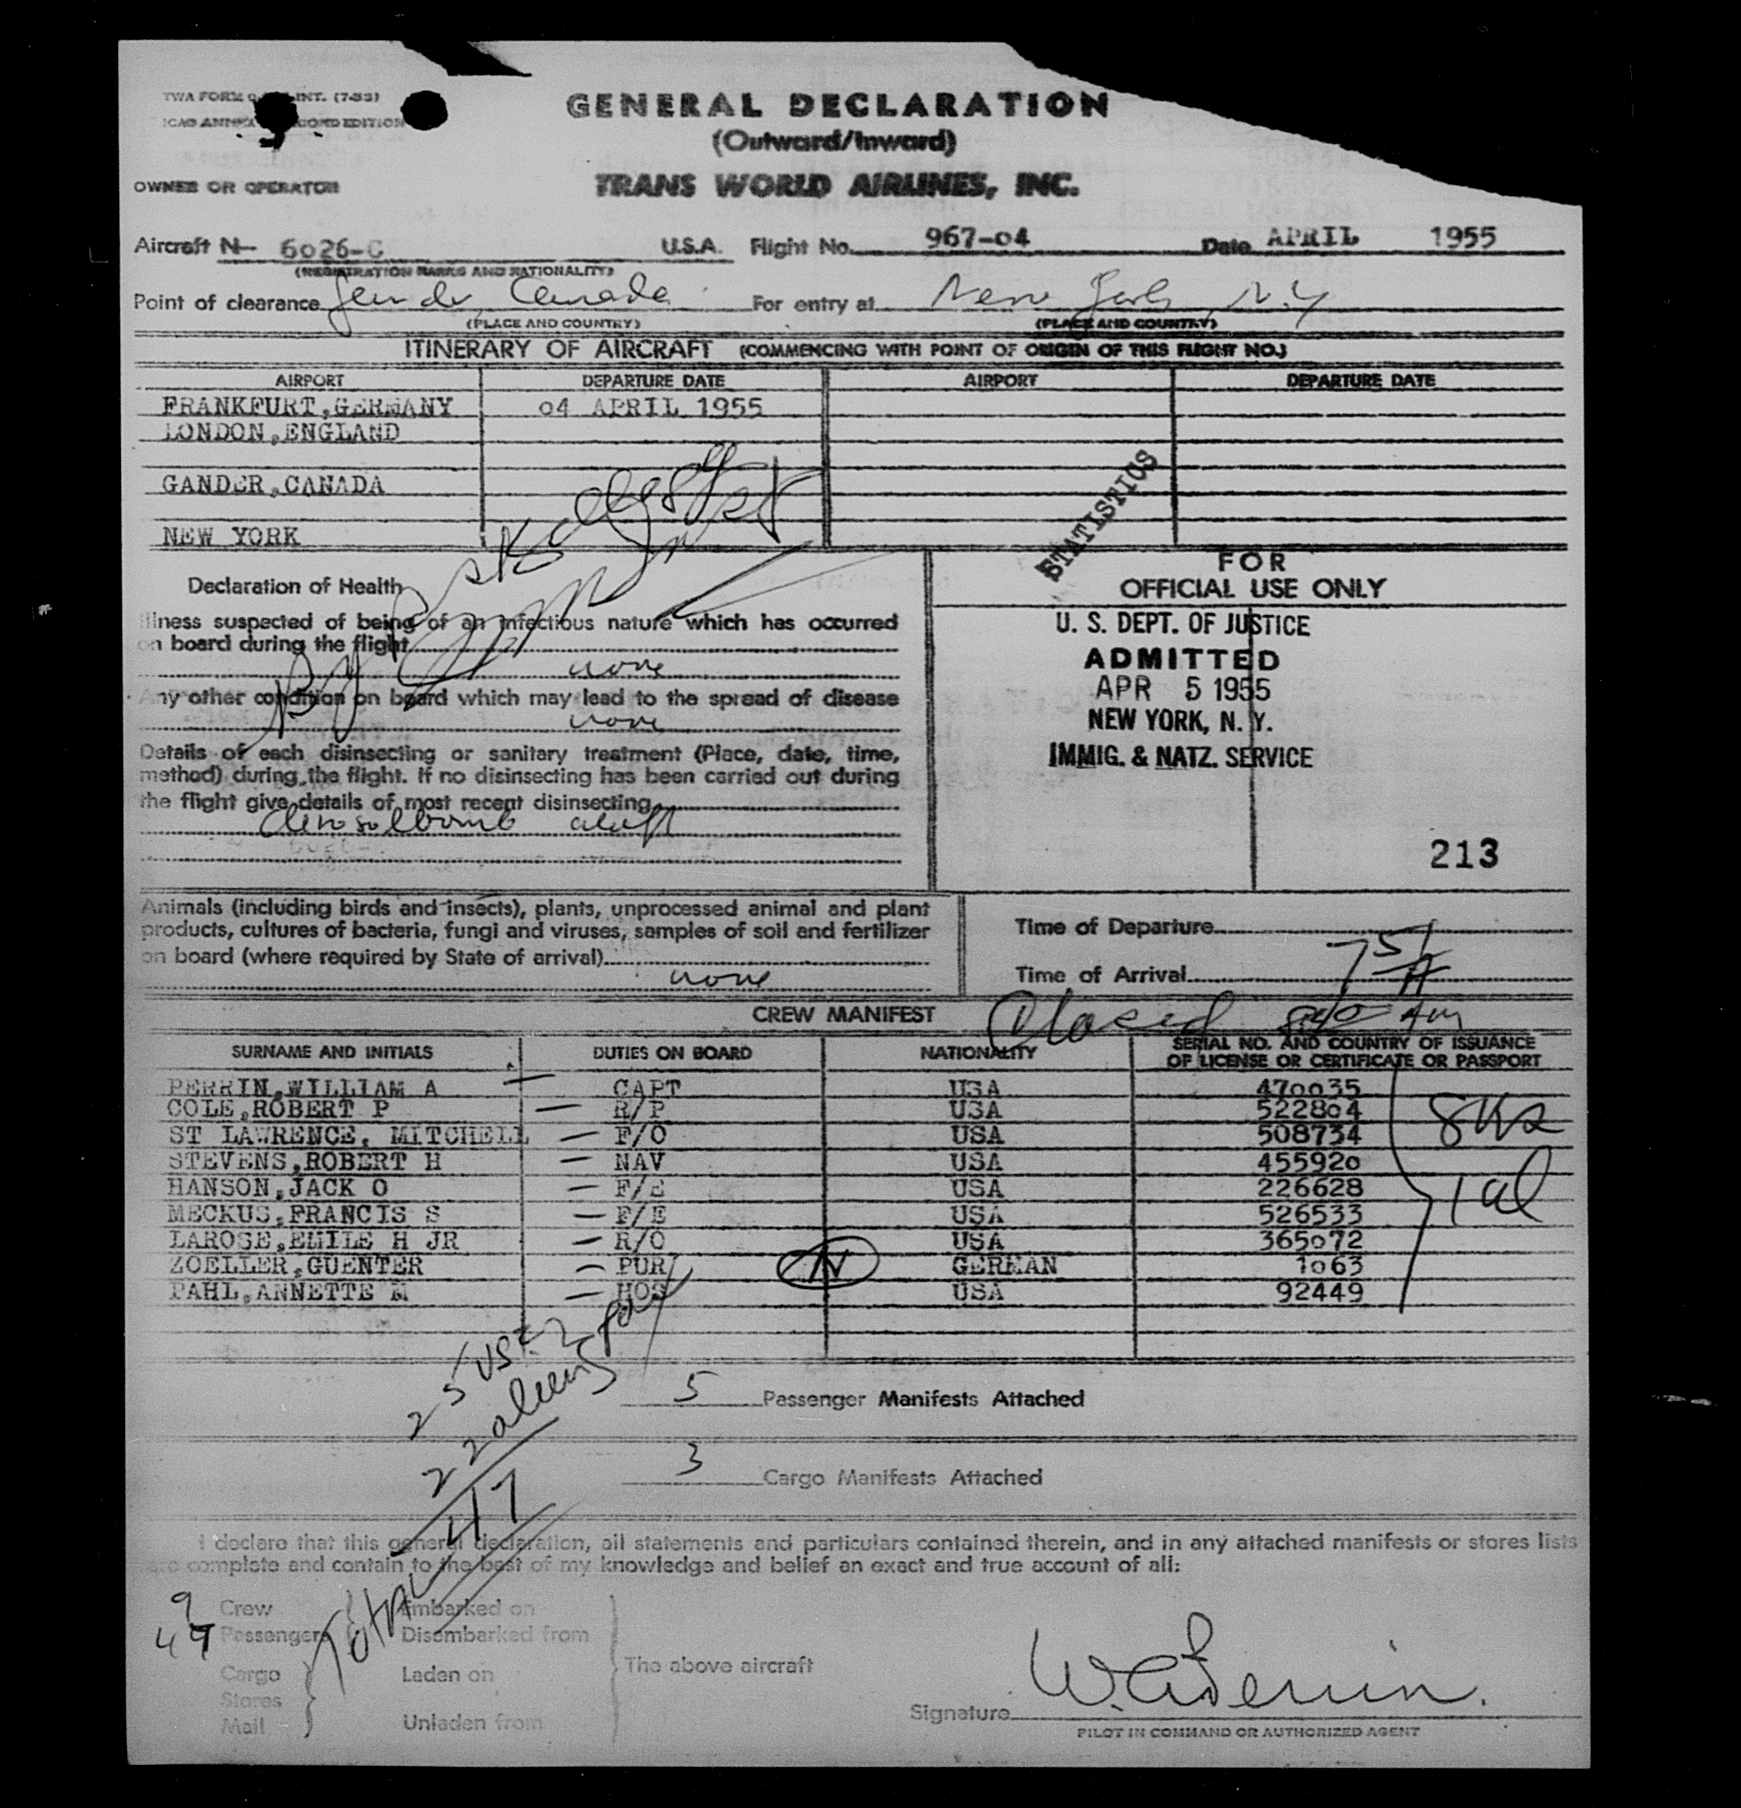 TWA FORM INT. (7-53)
ICAO ANNEX SECOND EDITION
GENERAL DECLARATION
(Outward/Inward)
OWNER OR OPERATOR TRANS WORLD AIRLINES, INC.
Aircraft N- 6026-C U.S.A. Flight No. 967-04 Date APRIL 1955
(REGISTRATION MARKS AND NATIONALITY)
Point of clearance Gander, Canada For entry at New York, N.Y
(PLACE AND COUNTRY) (PLACE AND COUNTRY)
ITINERARY OF AIRCRAFT (COMMENCING WITH POINT OF ORIGIN OF THIS FLIGHT NO.)
AIRPORT DEPARTURE DATE AIRPORT DEPARTURE DATE
FRANKFURT,GERMANY 04 APRIL 1955
LONDON,ENGLAND
GANDER,CANADA
NEW YORK
STATISTICS
Declaration of Health
Illness suspected of being of an infectious nature which has occurred
on board during the flight
none
Any other condition on board which may lead to the spread of disease
none
Details of each disinsecting or sanitary treatment (Place, date, time,
method) during the flight. If no disinsecting has been carried out during
the flight give details of most recent disinsecting
FOR
OFFICIAL USE ONLY
U. S. DEPT. OF JUSTICE
ADMITTED
APR 5 1955
NEW YORK, N. Y.
IMMIG. & NATZ. SERVICE
213
Animals (including birds and insects), plants, unprocessed animal and plant
products, cultures of bacteria, fungi and viruses, samples of soil and fertilizer
on board (where required by State of arrival)
none
Time of Departure
Time of Arrival 751 A
CREW MANIFEST Closed 840 AM
SURNAME AND INITIALS DUTIES ON BOARD NATIONALITY SERIAL NO. AND COUNTRY OF ISSUANCE
OF LICENSE OR CERTIFICATE OR PASSPORT
PERRIN,WILLIAM A — CAPT USA 470035
COLE,ROBERT P — R/P USA 522804
ST LAWRENCE, MITCHELL — F/O USA 508734
STEVENS,ROBERT H — NAV USA 455920
HANSON,JACK O — F/E USA 226628
MECKUS,FRANCIS S — F/E USA 526533
LAROSE,EMILE H JR — R/O USA 365072
ZOELLER,GUENTER — PUR N GERMAN 1063
PAHL,ANNETTE M — HOS USA 92449
8 USc
1 al
25 USc
22 aliens
47
Total
5 Passenger Manifests Attached
3 Cargo Manifests Attached
I declare that this general declaration, all statements and particulars contained therein, and in any attached manifests or stores lists
are complete and contain to the best of my knowledge and belief an exact and true account of all:
9 Crew Embarked on
47 Passengers Disembarked from
The above aircraft
Cargo Laden on
Stores
Mail Unladen from
Signature W.A. Perrin.
PILOT IN COMMAND OR AUTHORIZED AGENT